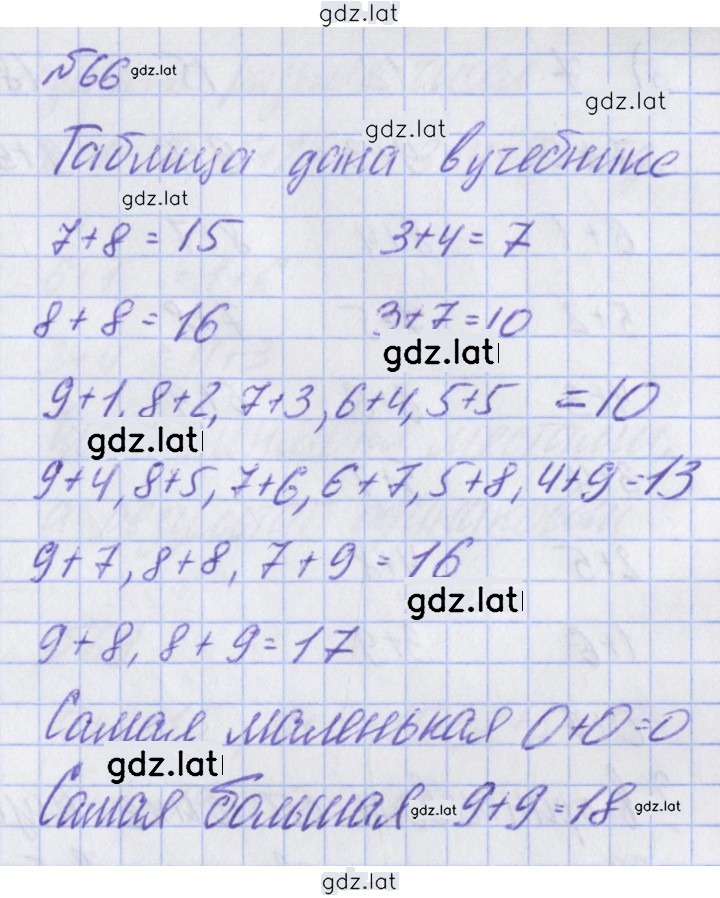 gdz.lat
№66 gdz.lat
gdz.lat
gdz.lat
Таблица дана в учебнике
gdz.lat
7+8=15 3+4=7
8+8=16 3+7=10
gdz.lat
9+1, 8+2, 7+3, 6+4, 5+5 =10
gdz.lat
9+4, 8+5, 7+6, 6+7, 5+8, 4+9=13
9+7, 8+8, 7+9=16
gdz.lat
9+8, 8+9=17
Самая маленькая 0+0=0
gdz.lat
Самая большая gdz.lat 9+9=18 gdz.lat
gdz.lat